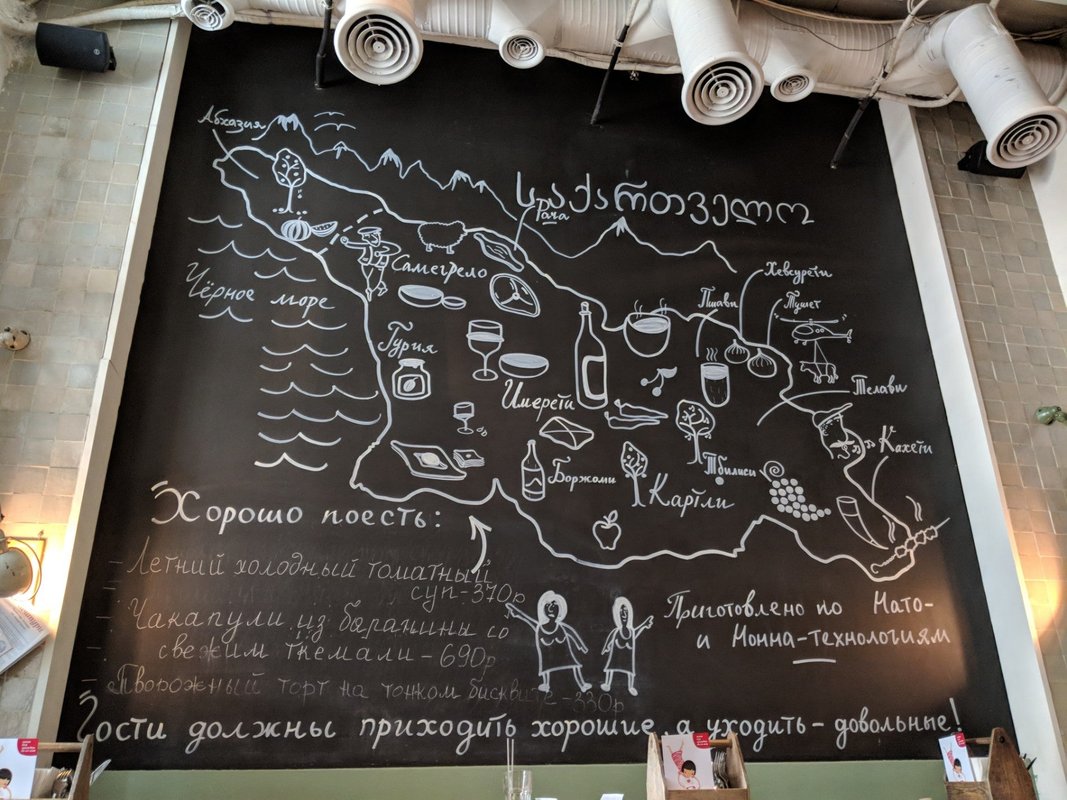 Абхазия
საქართველო
Рача
Хевсурети
Самегрело
Чёрное море
Пшави
Тушет
Гурия
Телави
Имерети
Кахети
Боржоми
Тбилиси
Картли
Хорошо поесть:
- Летний холодный томатный
суп-370р
- Чакапули из баранины со
свежим ткемали-690р
- Творожный торт на тонком бисквите-330р
Приготовлено по Мато-
и Нонна-технологиям
Гости должны приходить хорошие, а уходить-довольные!